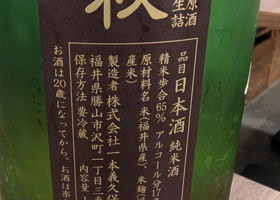 秋
原酒
生詰
品目 日本酒 純米酒
精米歩合65% アルコール分17
原材料名 米(福井県産)、米麹(
産米)
製造者 株式会社一本義久保
福井県勝山市沢町一丁目三
保存方法 要冷蔵 内容量
お酒は20歳になってから。お酒は